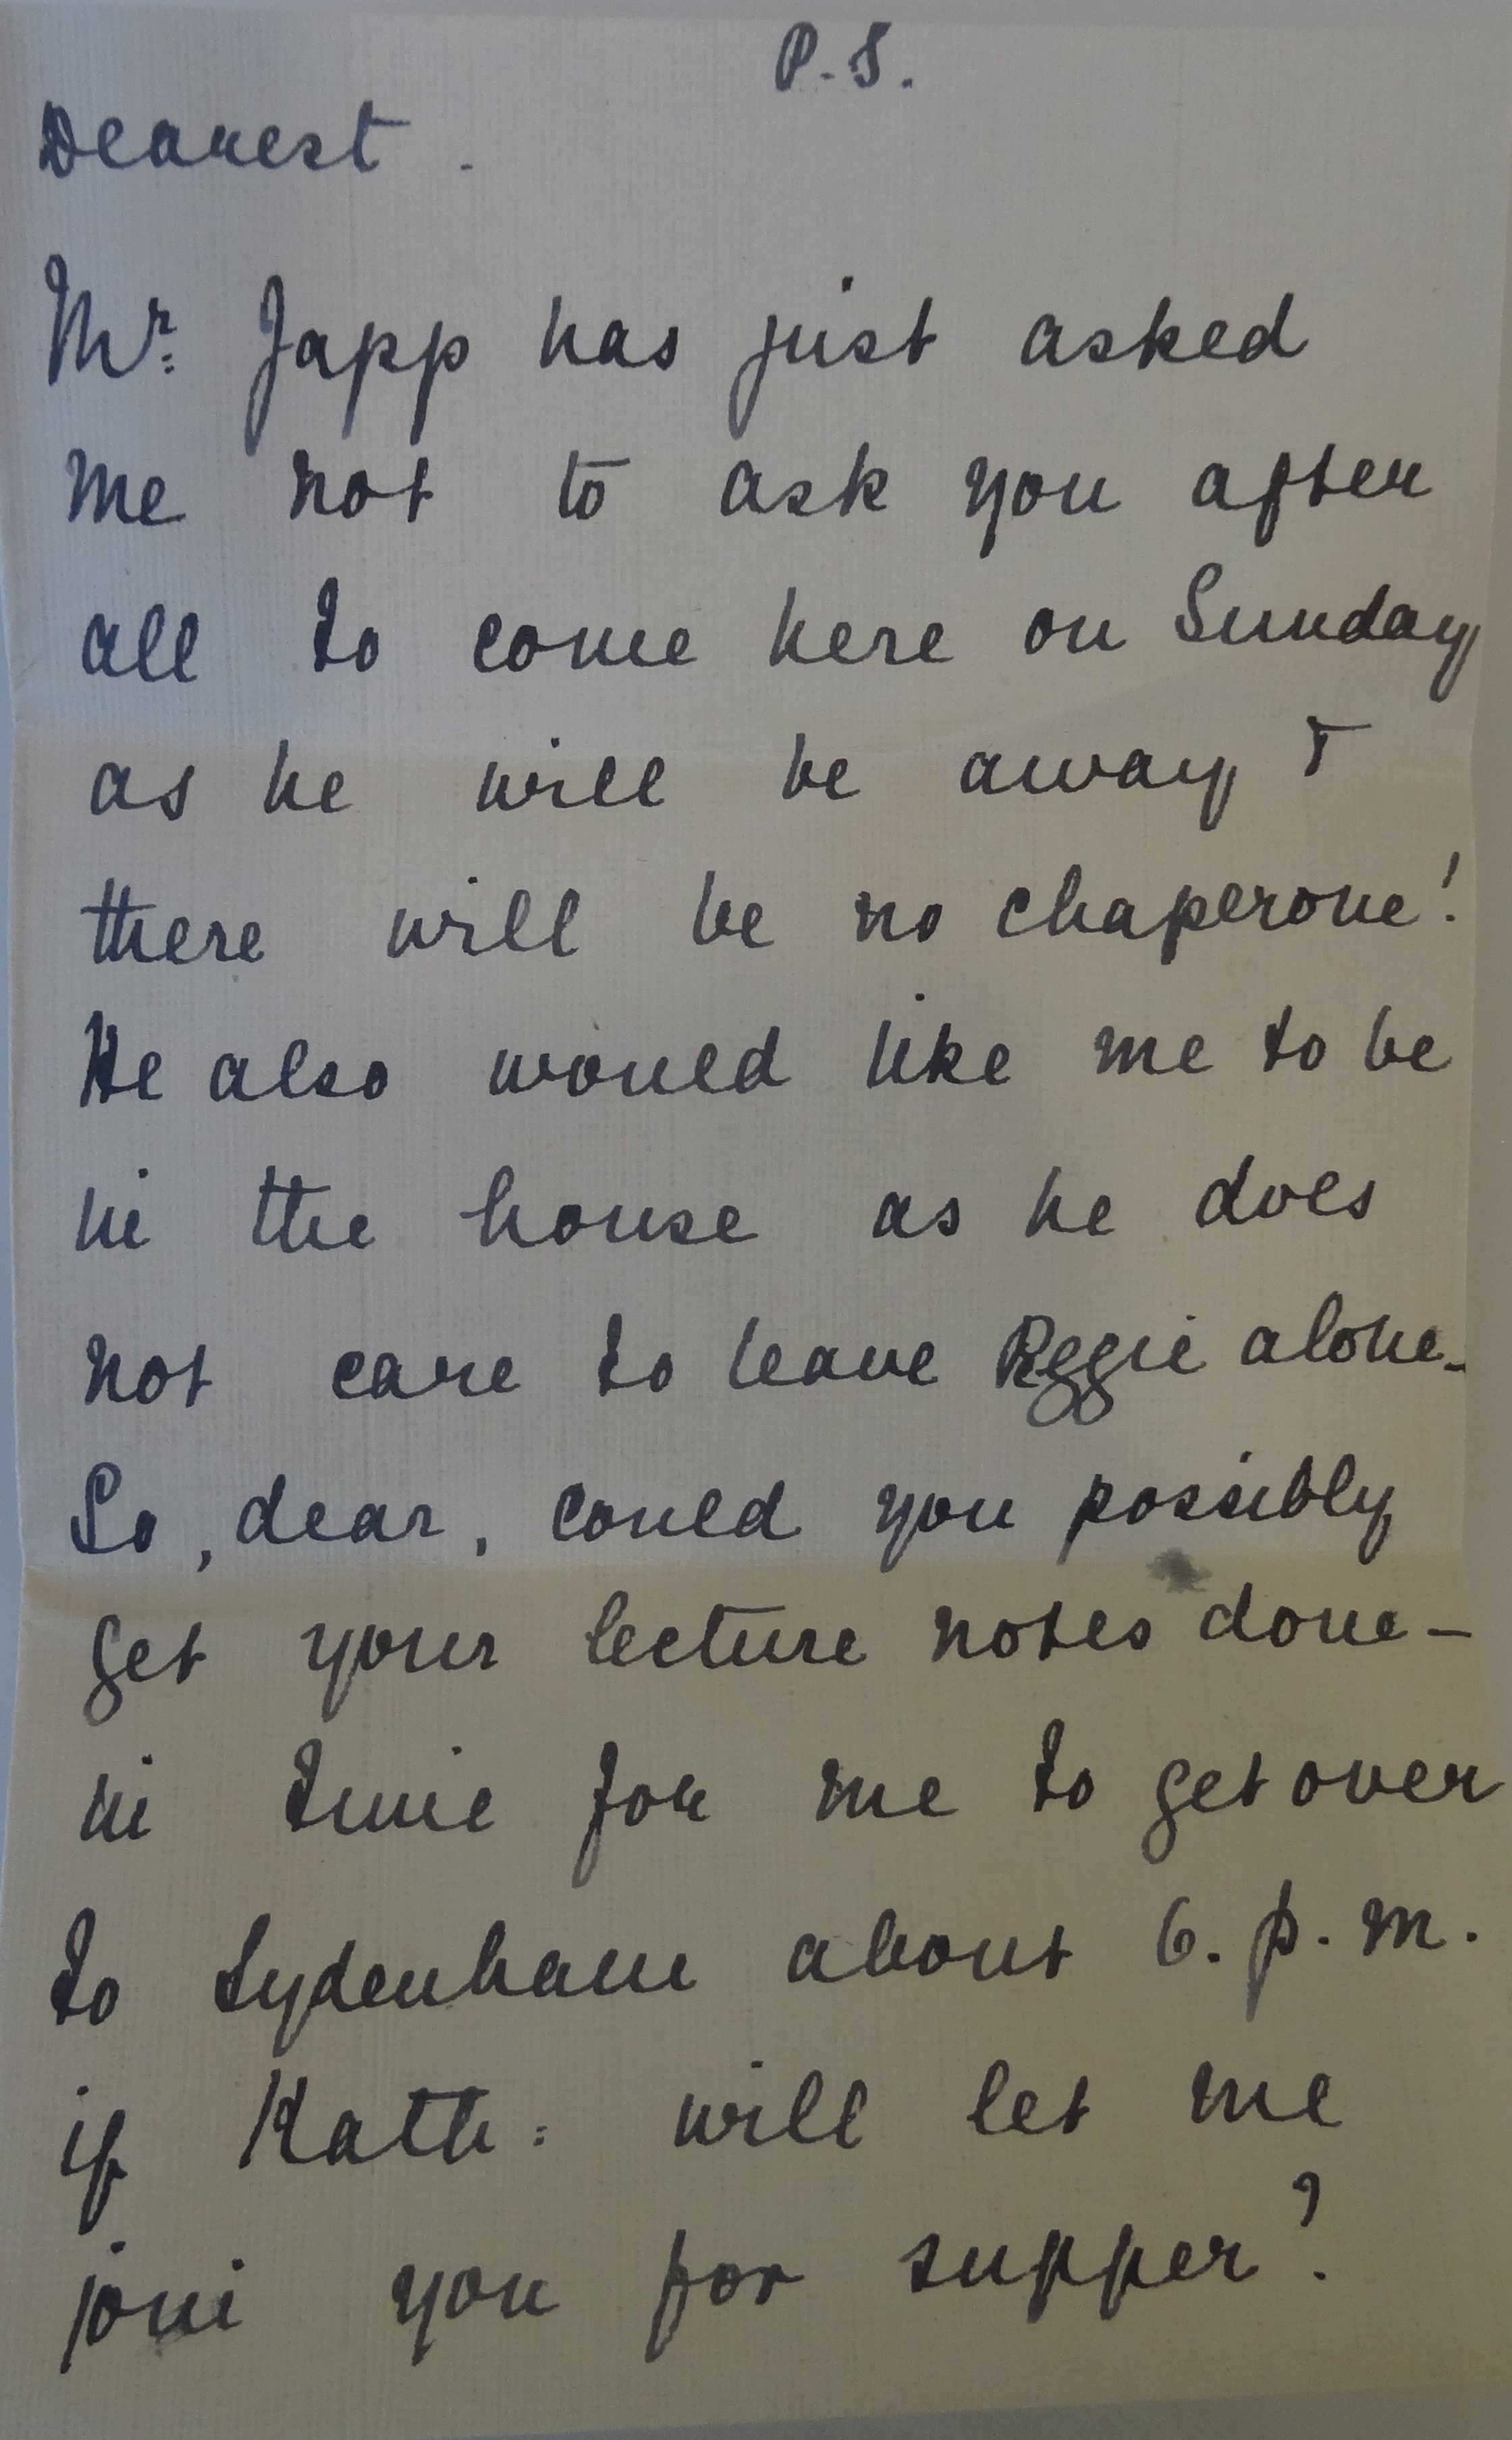 P.S.
Dearest.
Mr. Japp has just asked
me not to ask you after
all to come here on Sunday
as he will be away +
there will be no chaperone!
He also would like me to be
in the house as he does
not care to leave Reggie alone_
So, dear, could you possibly
get your lecture notes done –
in time for me to get over
to Sydenham about 6. p.m.
if Kath: will let me
join you for supper?